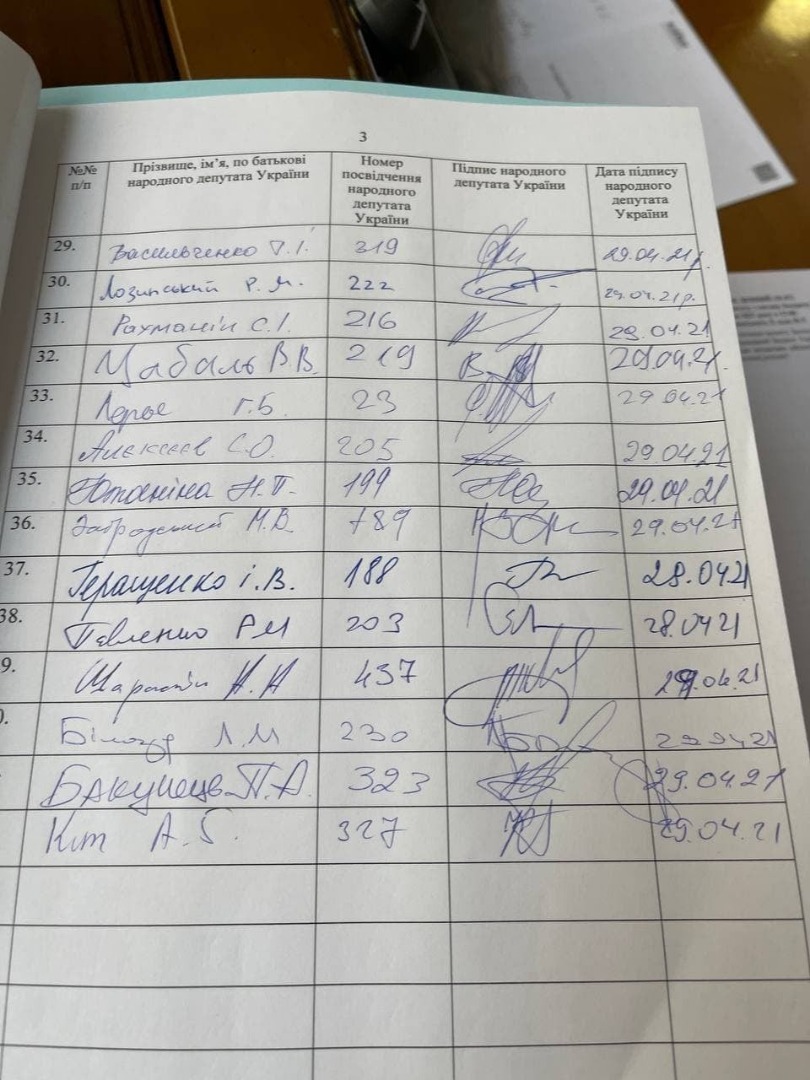 3
№№ п/п Прізвище, ім’я, по батькові народного депутата України Номер посвідчення народного депутата України Підпис народного депутата України Дата підпису народного депутата України
29. Васильченко Г.І. 319 29.04.21р.
30. Лозинський Р.М. 222 29.04.21р.
31. Рахманін С.І. 216 29.04.21
32. Цабаль В.В. 219 29.04.21.
33. Лерос Г.Б. 23 29.04.21
34. Алєксєєв С.О. 205 29.04.21
35. Юпаніна Н.П. 199 29.04.21
36. Забродський М.В. 189 29.04.21
37. Геращенко І.В. 188 28.0421
38. Павленко Р.М 203 28.0421
9. А.А 437 29.04.21
Білозір Л.М 230 29.0421
Бакунець П.А. 323 29.04.21
Кіт А.Б. 327 29.04.21